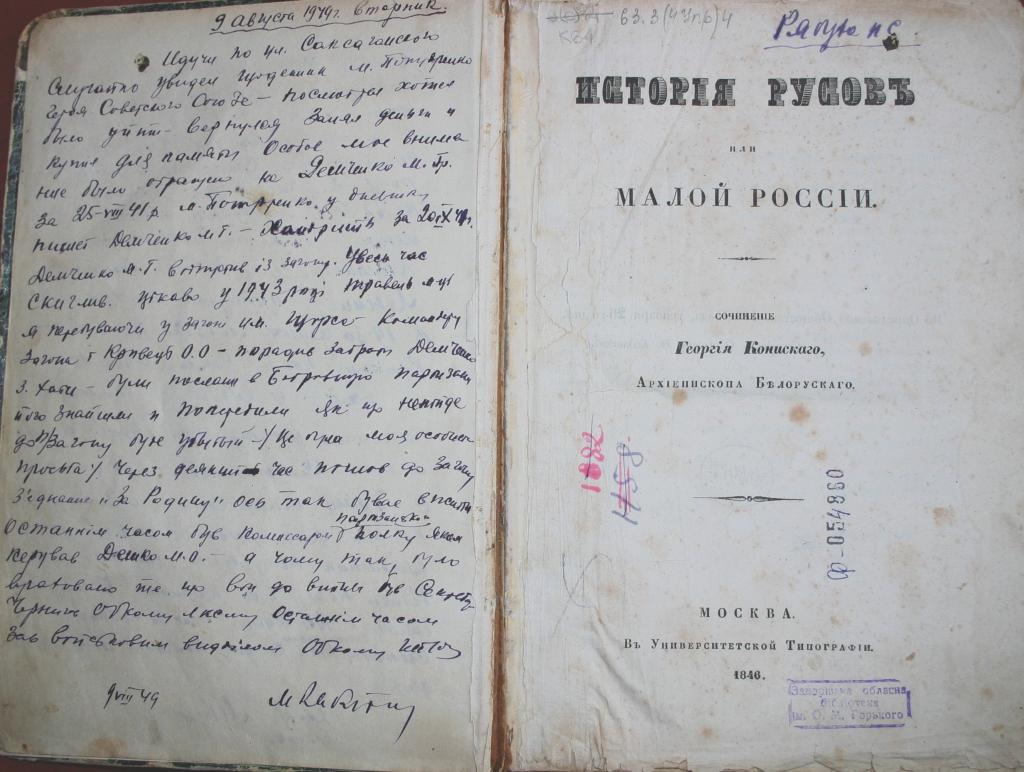 9 Августа 1949г. Вторник.
Идучи по ул. Саксаганского
Случайно увидел М. Попудренко
Героя Советского Союза – посмотрел хотел
было уйти – вернулся Занял деньги и
купил для памяти Особое мое внима
ние было обращено на Демченко М. Гр.
За 25-VIII 41 р М. Попудренко у
пишет Демченко М. Г. – За 20 IX 41 г.
Демченко М. Г. із загону. Увесь час
скиглив. Цікаво у 1943 році травень м-ці
я перебуваючи у загоні ім. Щорса Командир
Загона т Кривець О. О – порадив забрать Демченко
З хати – були послані в Партизани
його знайшли и попередили як що непійде
до п/Загону буде убитый / Це була моя особиста
просьба / Через деякий час пішов до Загону
З'єднание "За Родину" ось так буває в житті
Останнім часом був Комиссаром партизанского Полку яким
керував М. О. – а чому так було
враховано те що він до війни був Секрет.
Обкому останнім часом
Зав військовим відділом Обкому
9 VIII 49
63.3(4Укр)4
ИСТОРІЯ РУСОВЪ
ИЛИ
МАЛОЙ РОССІИ.
СОЧИНЕНІЕ
Георгія Конискаго,
Архіепископа Бѣлорускаго.
1882
1758
Ф-054860
МОСКВА.
Въ Университетской Типографіи.
1846.
обласна
бібліотека
ім. О. М. Горького